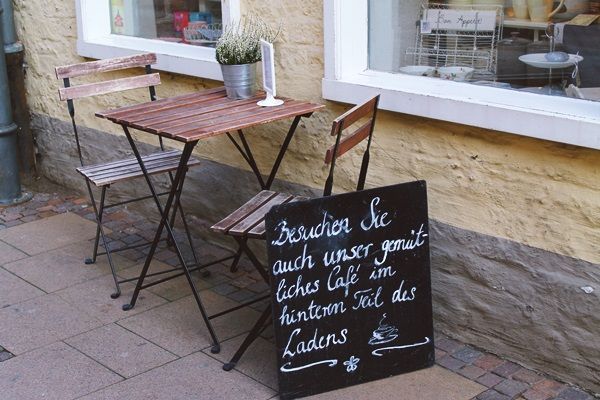 Bon Appetit
Besuchen Sie
auch unser gemüt-
liches Café im
hinteren Teil des
Ladens